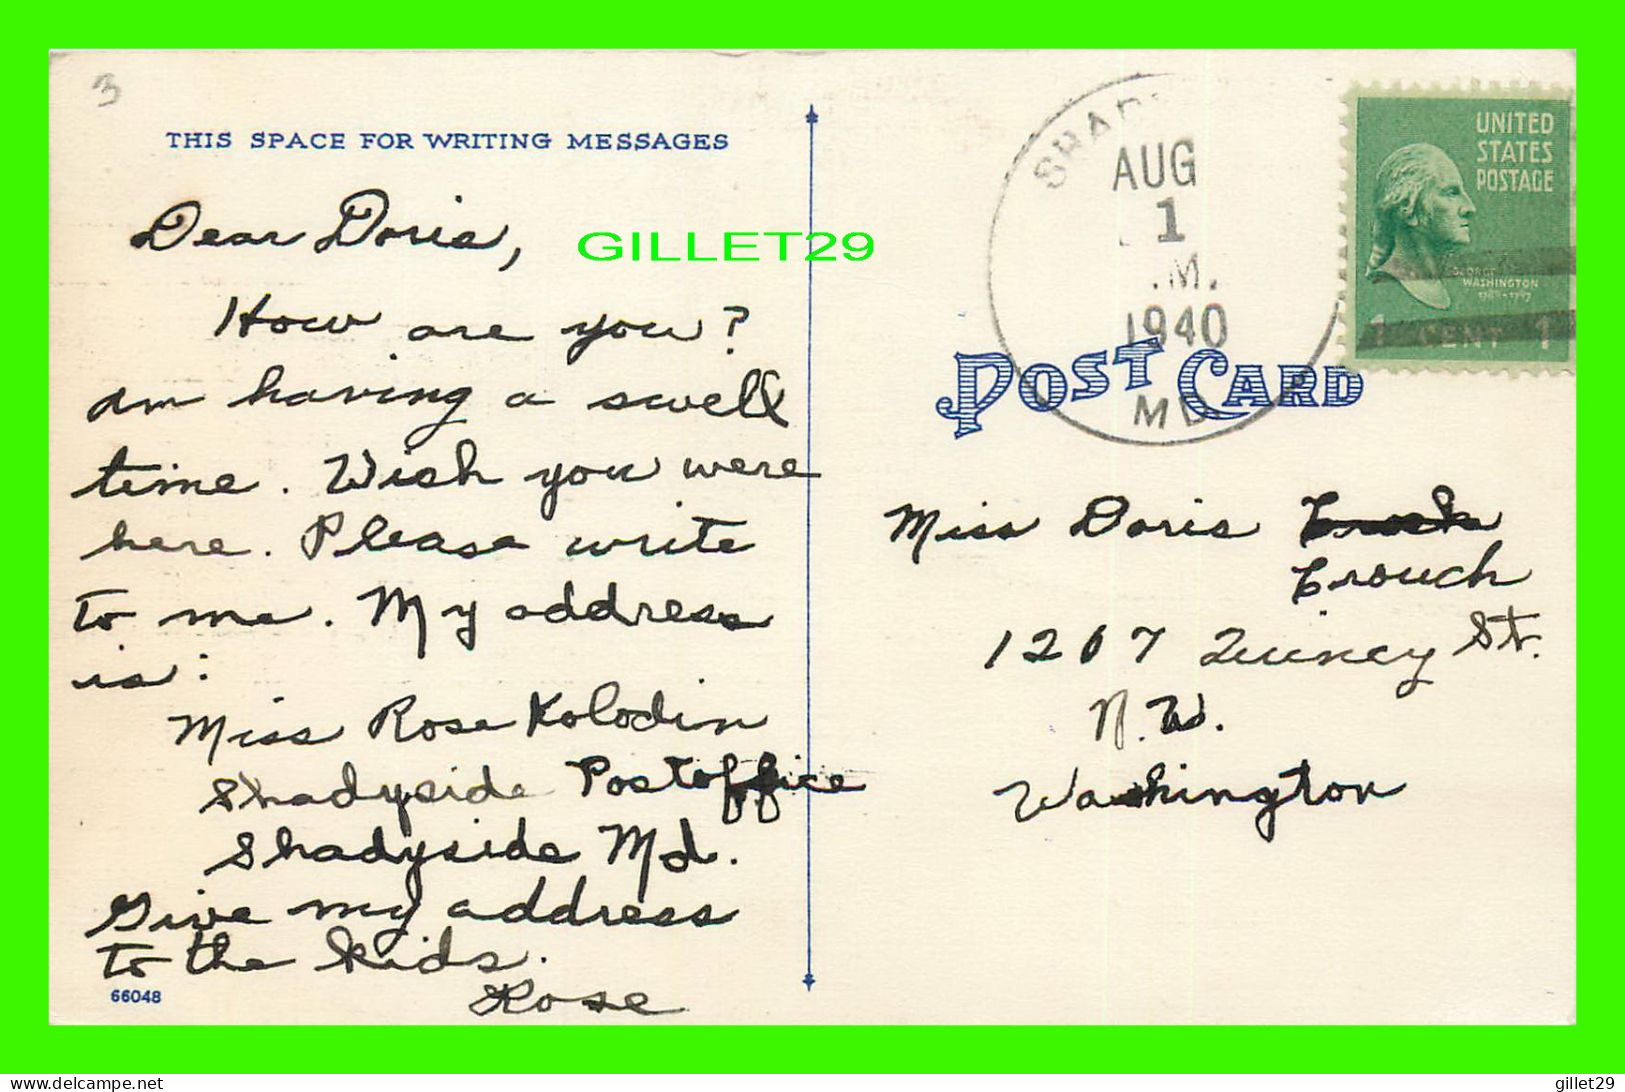 3
THIS SPACE FOR WRITING MESSAGES
Dear Doris,
How are you?
am having a swell
time. Wish you were
here. Please write
to me. My address
is:
Miss Rose Kolodin
Shadyside Postoffice
Shadyside Md.
Give my address
to the kids.
Rose
66048
GILLET29
AUG
1
.M.
1940
MD
UNITED
STATES
POSTAGE
GEORGE
WASHINGTON
1 CENT 1
POST CARD
Miss Doris
Crouch
1207 Quincy St.
N.W.
Washington
delcampe.net
gillet29